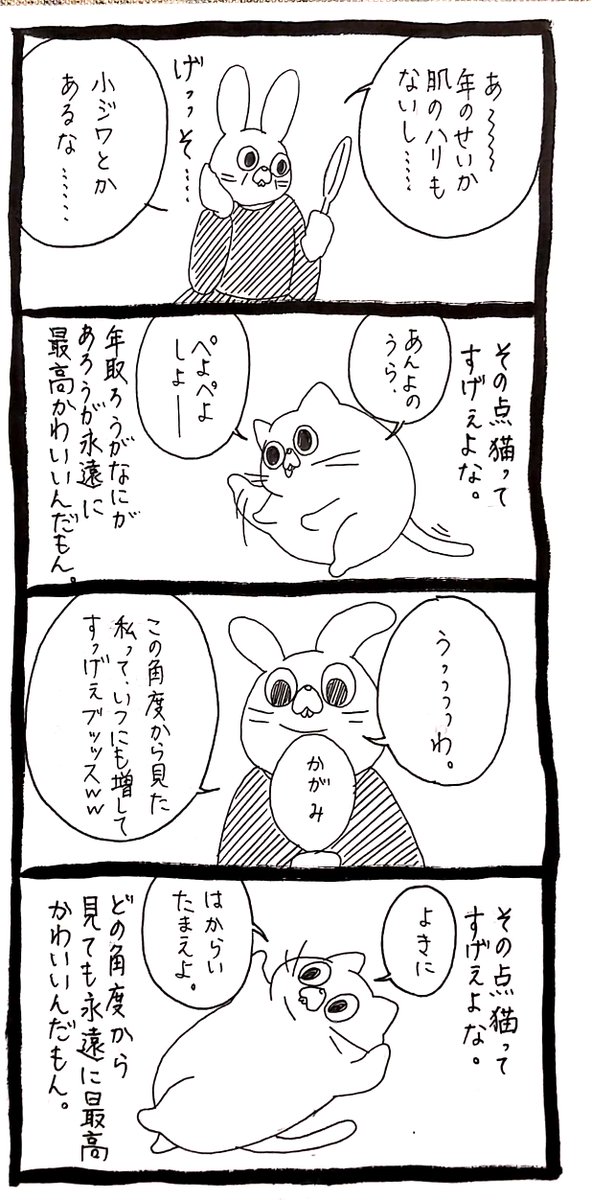 あ〜〜〜
年のせいか
肌のハリも
ないし……
げっっそ……
小ジワとか
あるな……
その点猫って
すげぇよな。
あんよの
うら、
ぺよぺよ
しよーー
年取ろうがなにが
あろうが永遠に
最高かわいいんだもん。
うっっっっわ。
かがみ
この角度から見た
私って、いつにも増して
すっげぇブッッスww
その点猫って
すげぇよな。
よきに
はからい
たまえよ。
どの角度から
見ても永遠に最高
かわいいんだもん。